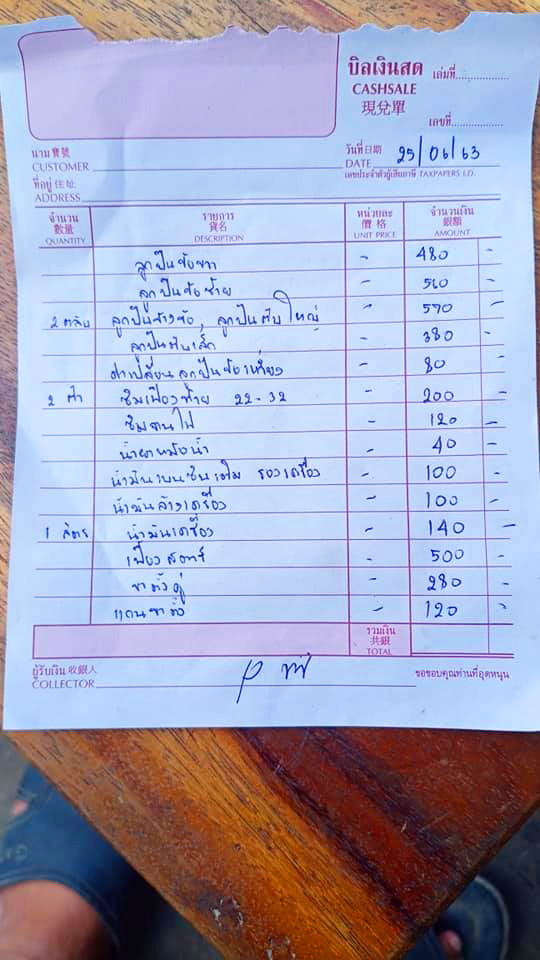 บิลเงินสด เล่มที่
CASHSALE
現兌單
เลขที่
นาม 寶號
CUSTOMER
วันที่ 日期
DATE 25/06/63
เลขประจำตัวผู้เสียภาษี TAXPAPERS I.D.
ที่อยู่ 住址
ADDRESS
จำนวน 數量 QUANTITY รายการ 貨名 DESCRIPTION หน่วยละ 價格 UNIT PRICE จำนวนเงิน 銀額 AMOUNT
ลูกปืนข้อขวา - 480 -
ลูกปืนข้อซ้าย - 560 -
2 ตลับ ลูกปืนข้างข้อ, ลูกปืนตับใหญ่ - 590 -
ลูกปืนตับเล็ก - 380 -
ลูกปืนข้อเหวี่ยง - 80 -
2 ตัว ซิมเฟืองท้าย 22-32 - 200 -
- 120 -
น้ำยาหม้อน้ำ - 40 -
น้ำมันเบนซิน ลองเครื่อง - 100 -
น้ำมันล้างเครื่อง - 100 -
1 ลิตร น้ำมันเครื่อง - 140 -
เฟืองสตาร์ - 500 -
ขาตั้งคู่ - 280 -
แกนขาตั้ง - 120 -
รวมเงิน
共銀
TOTAL
ผู้รับเงิน 收銀人
COLLECTOR
ขอขอบคุณท่านที่อุดหนุน